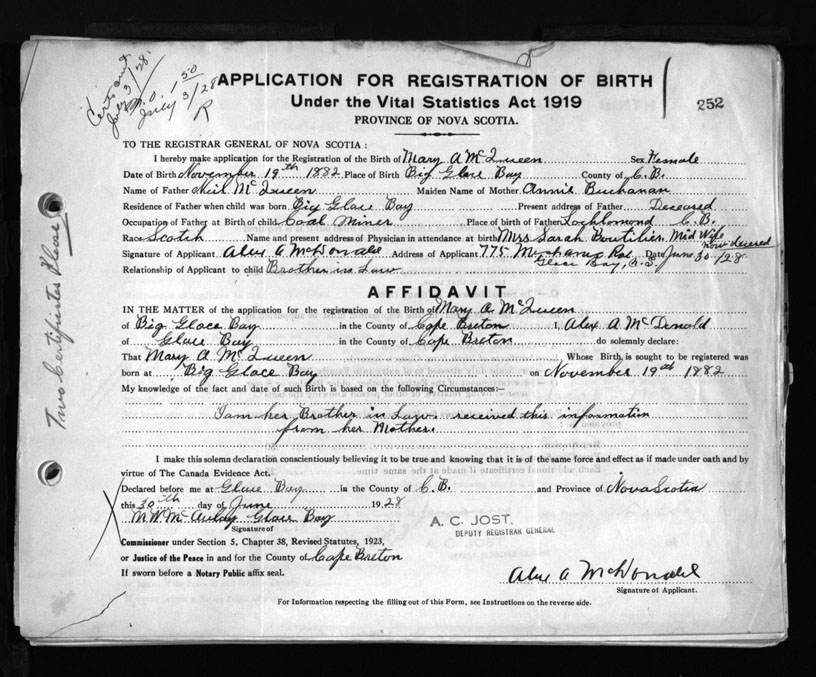 Certs and
July 3/28.
M.O. 1 50
July 3/28
R
APPLICATION FOR REGISTRATION OF BIRTH
252
Under the Vital Statistics Act 1919
PROVINCE OF NOVA SCOTIA.
TO THE REGISTRAR GENERAL OF NOVA SCOTIA :
I hereby make application for the Registration of the Birth of Mary A McQueen Sex Female
Date of Birth November 19th 1882 Place of Birth Big Glace Bay County of C.B.
Name of Father Neil McQueen Maiden Name of Mother Annie Buchanan
Residence of Father when child was born Big Glace Bay Present address of Father Deceased
Occupation of Father at Birth of child Coal Miner Place of birth of Father Lochlomond C.B.
Race Scotch Name and present address of Physician in attendance at birth Mrs Sarah Boutilier, Mid Wife
now deceased
Signature of Applicant Alex A McDonald Address of Applicant 775 Date June 30/28
Glace Bay, N.S.
Relationship of Applicant to child Brother in Law
AFFIDAVIT
IN THE MATTER of the application for the registration of the Birth of Mary A McQueen
of Big Glace Bay in the County of Cape Breton I, Alex A McDonald
of Glace Bay in the County of Cape Breton do solemnly declare:
That Mary A McQueen, Whose Birth is sought to be registered was
born at Big Glace Bay on November 19th 1882
My knowledge of the fact and date of such Birth is based on the following Circumstances:—
I am her Brother in Law. received this information
from her Mother.
I make this solemn declaration conscientiously believing it to be true and knowing that it is of the same force and effect as if made under oath and by
virtue of The Canada Evidence Act.
Declared before me at Glace Bay in the County of C.B. and Province of Nova Scotia
this 30th day of June 1928
M W McAulay Glace Bay
Signature of
A. C. JOST,
DEPUTY REGISTRAR GENERAL
Commissioner under Section 5, Chapter 38, Revised Statutes, 1923,
or Justice of the Peace in and for the County of Cape Breton
If sworn before a Notary Public affix seal.
Alex A McDonald
Signature of Applicant.
For Information respecting the filling out of this Form, see Instructions on the reverse side.
Two Certificates Please